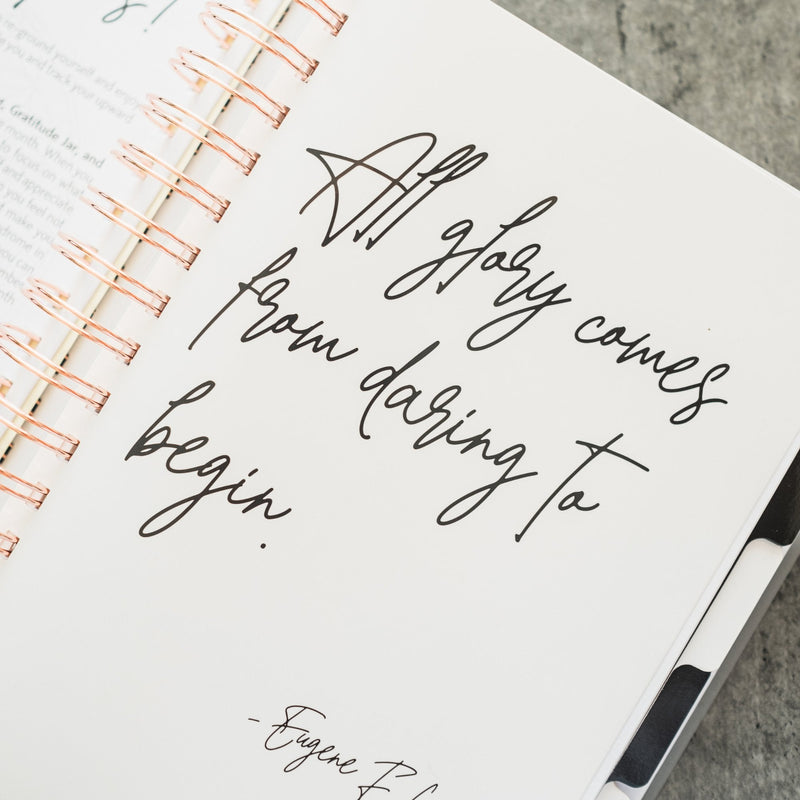 re-ground yourself and enjoy
you and track your upward
Gratitude Jar, and
month. When you
to focus on what
and appreciate
you feel not
make you
in
you can
All glory comes
from daring to
begin.
- Eugene